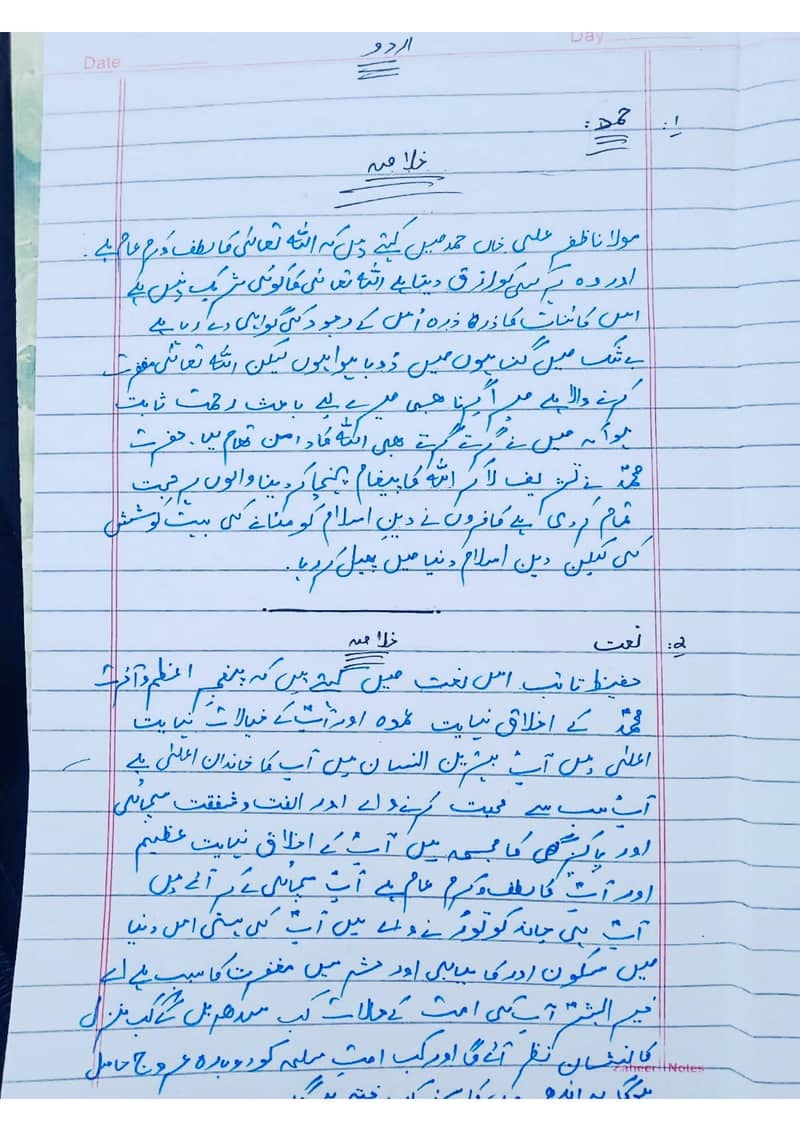 Date
Day
اردو
1: حمد:
خلاصہ
مولانا ظفر علی خاں حمد میں کہتے ہیں کہ اللہ تعالیٰ کا لطف و کرم عام ہے۔
اور وہ ہر کسی کو رزق دیتا ہے اللہ تعالیٰ کا کوئی شریک نہیں ہے
اس کائنات کا ذرہ ذرہ اُس کے وجود کی گواہی دے رہا ہے
بے شک میں گناہوں میں ڈوبا ہوا ہوں لیکن اللہ تعالیٰ مغفرت
کرنے والا ہے میرا گرنا بھی میرے لیے باعث رحمت ثابت
ہوا کہ میں نے گرتے گرتے بھی اللہ کا دامن تھام لیا۔ حضرت
محمدؐ نے تشریف لا کر اللہ کا پیغام پہنچا کر دنیا والوں پر حجت
تمام کر دی ہے کافروں نے دینِ اسلام کو مٹانے کی بہت کوشش
کی لیکن دین اسلام دنیا میں پھیل کر رہا۔
2: نعت
خلاصہ
حفیظ تائب اس نعت میں کہتے ہیں کہ پیغمبرِ اعظم و آخر
محمدؐ کے اخلاق نہایت عمدہ اور آپؐ کے خیالات نہایت
اعلیٰ ہیں آپؐ بہترین انسان ہیں آپ کا خاندان اعلیٰ ہے
آپؐ سب سے محبت کرنے والے اور الفت و شفقت سچائی
اور پاکیزگی کا مجسمہ ہیں آپؐ کے اخلاق نہایت عظیم
اور آپؐ کا لطف و کرم عام ہے آپؐ سچائی کے ہیں
آپؐ کو توڑنے والے ہیں آپؐ کی ہستی اس دنیا
میں سکون اور کامیابی اور حشر میں مغفرت کا سبب ہے اے
خیر البشرؐ آپؐ کی امت کے حالات کب سدھریں گے کب منزل
کا نشان نظر آئے گا اور کب امتِ مسلمہ کو دوبارہ عروج حاصل
Zaheer Notes